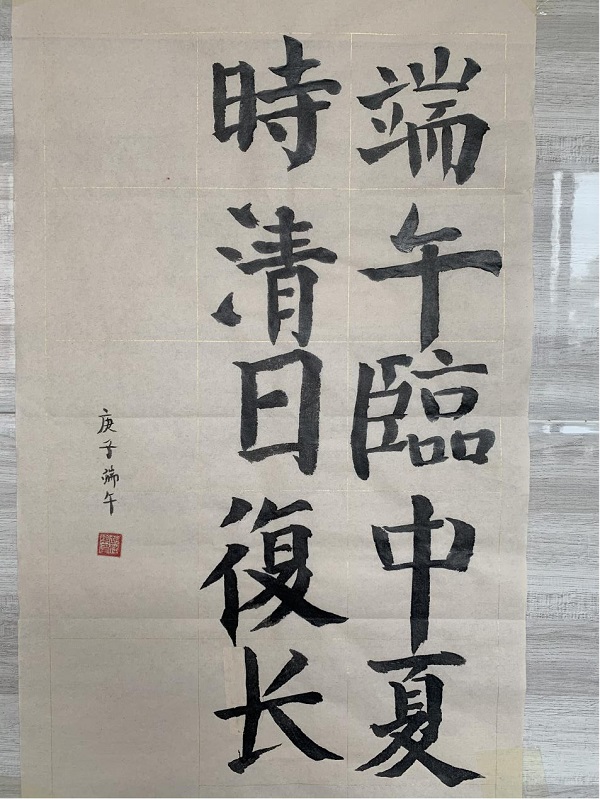 端午臨中夏
時清日復长
庚子端午